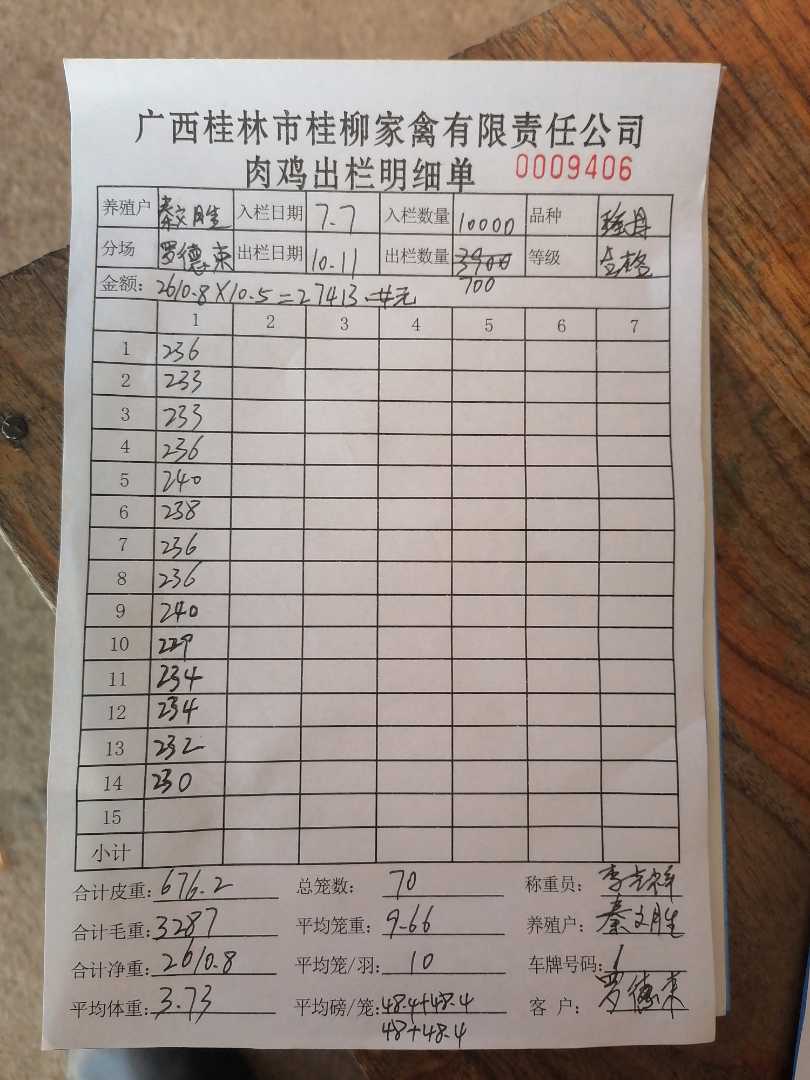 广西桂林市桂柳家禽有限责任公司
肉鸡出栏明细单 0009406
养殖户 秦文胜 入栏日期 7.7 入栏数量 10000 品种
分场 罗德东 出栏日期 10.11 出栏数量 700 等级 合格
金额: 2610.8×10.5=27413.4元
1 2 3 4 5 6 7
1 236
2 233
3 233
4 236
5 240
6 238
7 236
8 236
9 240
10 229
11 234
12 234
13 232
14 230
15
小计
合计皮重: 676.2 总笼数: 70 称重员:
合计毛重: 3287 平均笼重: 9.66 养殖户: 秦文胜
合计净重: 2610.8 平均笼/羽: 10 车牌号码: 1
平均体重: 3.73 平均磅/笼: 48.4+48.4 客 户: 罗德东
48+48.4